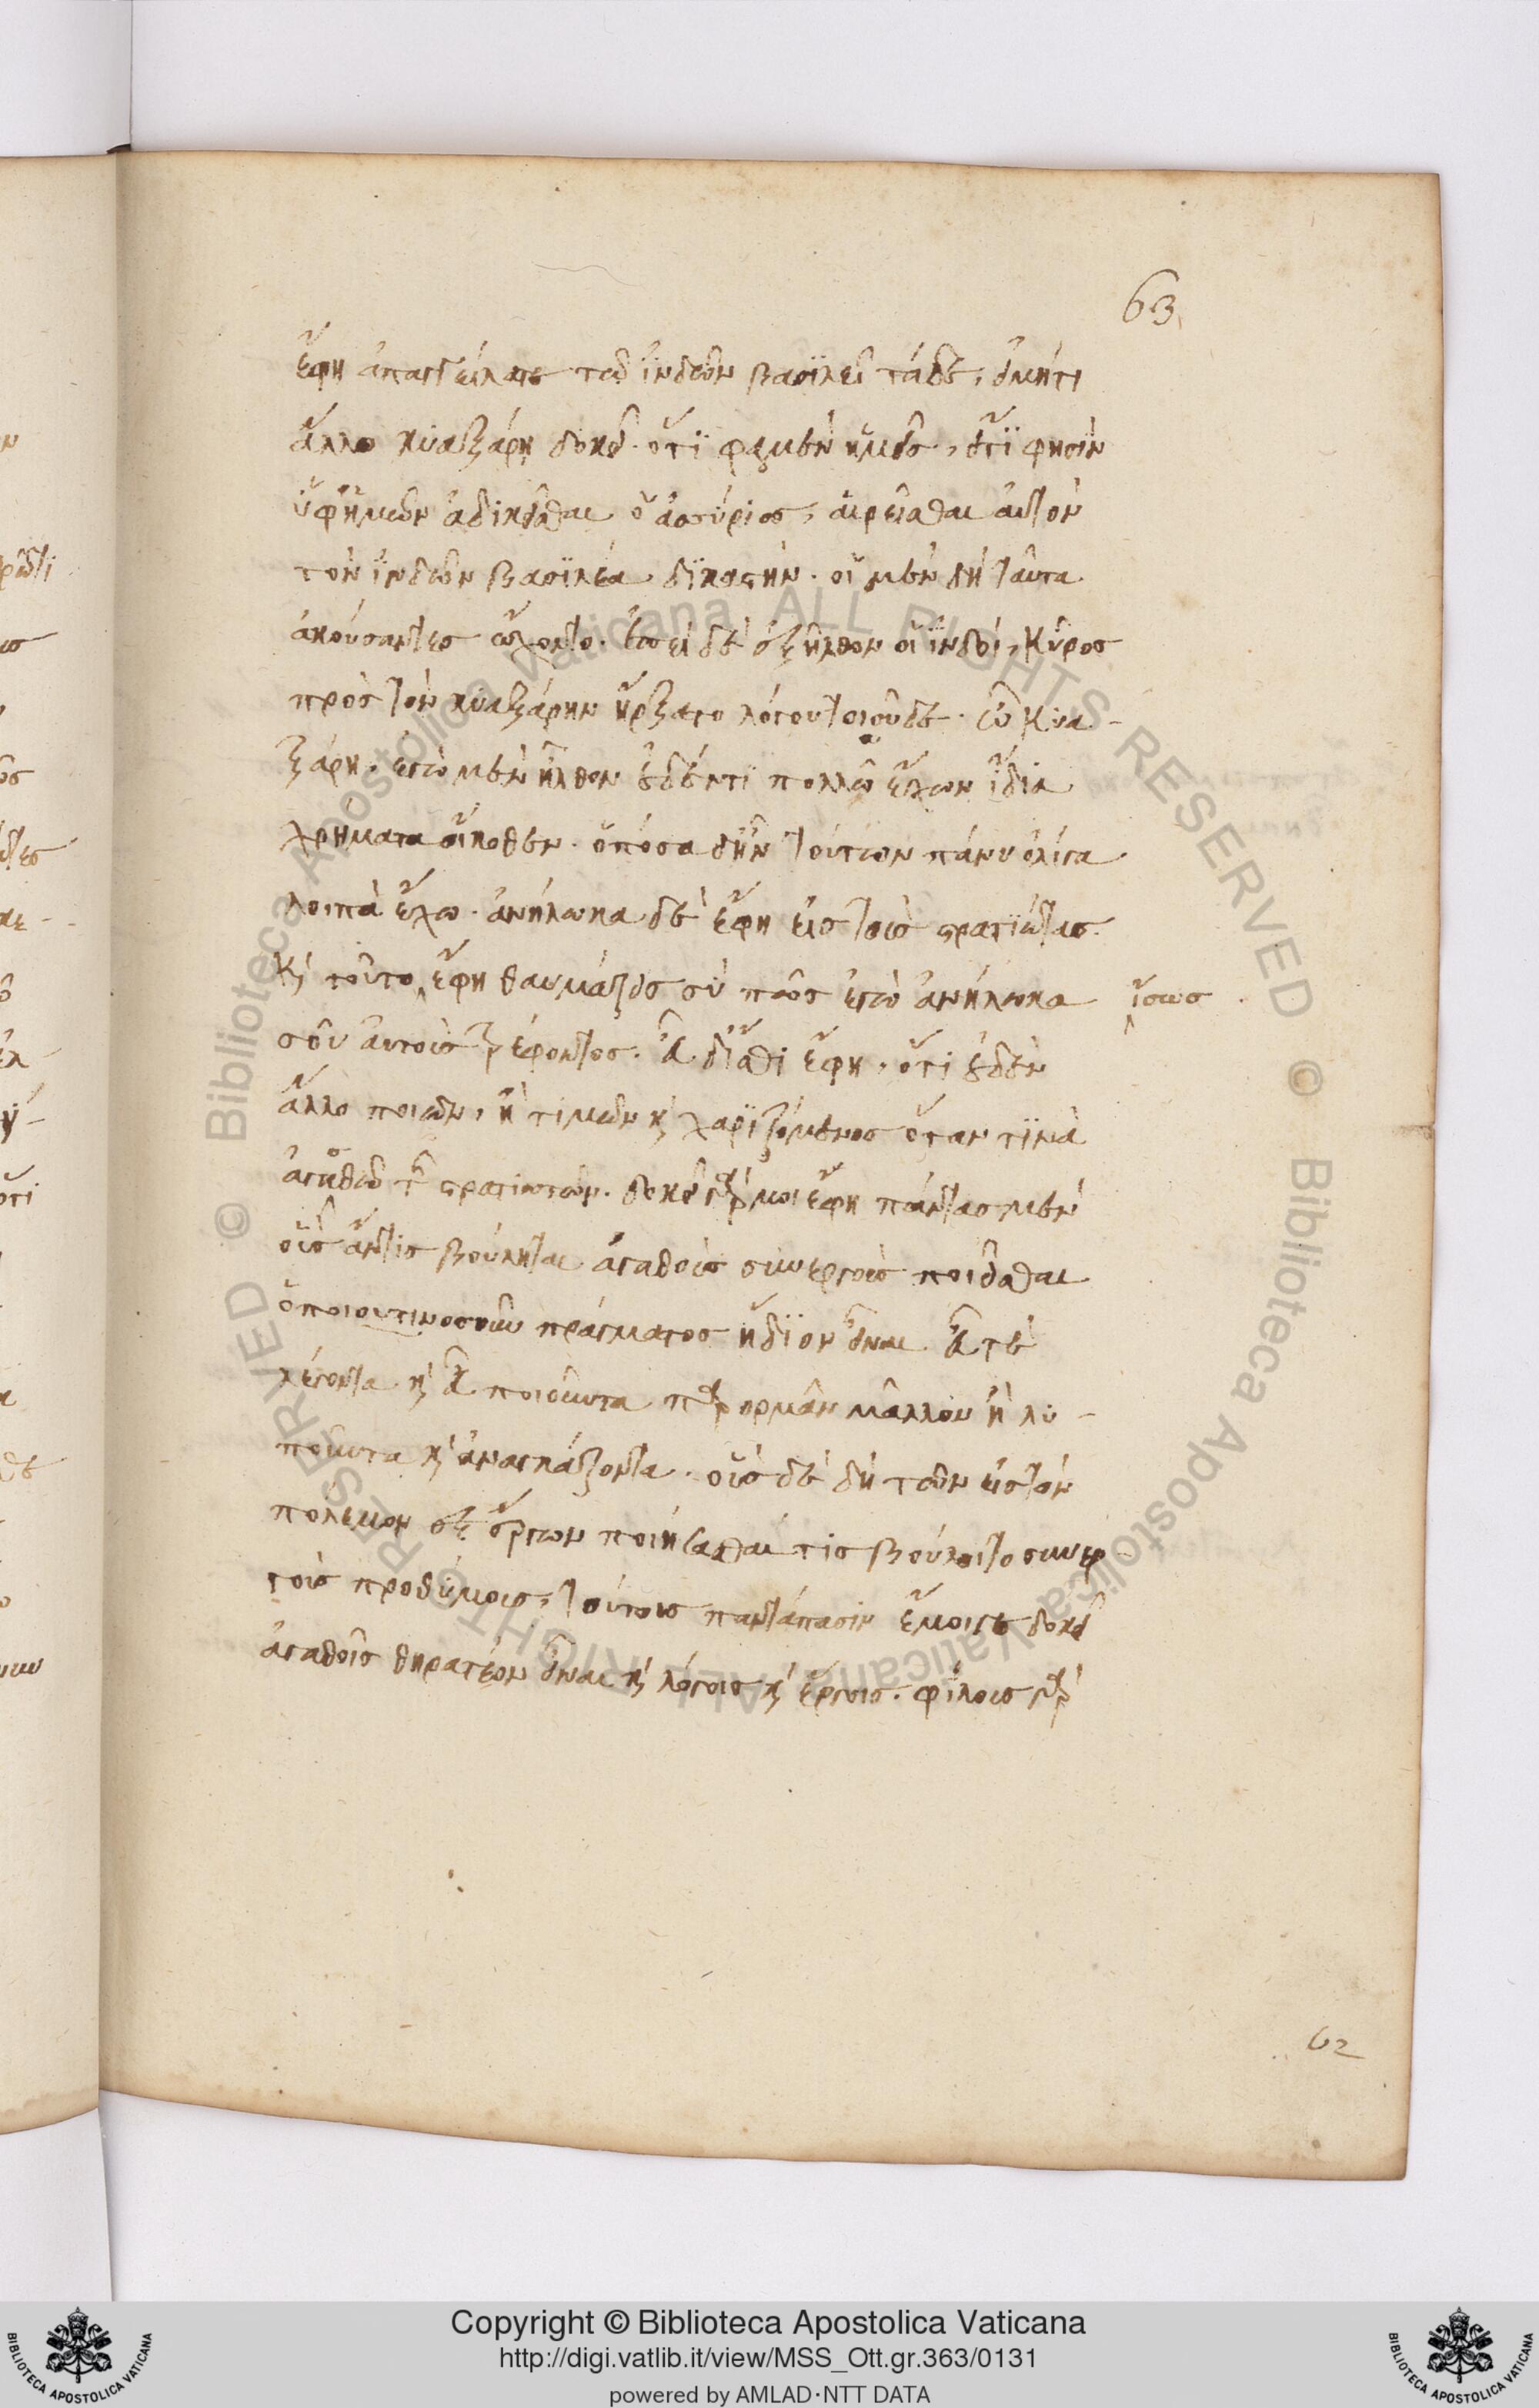 63
ἔφη ἀπαγγείλατε τῶ ἰνδῶν βασϊλεῖ τάδε, εἰμήτι
ἄλλο κϋαξάρη δοκεῖ. ὅτϊ φαμὲν ἡμεῖς, εἴτϊ φησὶν
ὑφἡμῶν ἀδικεῖσθαι ὁ ἀσσύριος, αἱρεῖσθαι αὐτὸν
τὸν ἰνδῶν βασϊλέα δϊκαστήν. οἱ μὲν δὴ ταῦτα
ἀκούσαντες ὤχοντο. ἐπεὶ δὲ ἐξῆλθον οἱ ἰνδοί, Κῦρος
πρὸς τὸν κϋαξάρην ἤρξατο λόγου τοιοῦδε. ὦ Κϋα-
ξάρη, ἐγὼ μὲν ἦλθον οὐδέντϊ πολλὰ ἔχων ἴδια
χρήματα οἴκοθεν. ὁπόσα δἦν τούτων πάνυ ὀλίγα
λοιπὰ ἔχω. ἀνήλωκα δὲ ἔφη εἰς τοὺς στρατϊώτας.
καὶ τοῦτο ἔφη θαυμάζεις σὺ πῶς ἐγὼ ἀνήλωκα ἴσως
σοῦ αὐτοὺς τρέφοντος. εὖ δἴσθι ἔφη, ὅτι οὐδὲν
ἄλλο ποιῶν, ἢ τιμῶν καὶ χαρϊζόμενος ὅταν τϊνὰ
ἀγασθῶ τῶν στρατιωτῶν. δοκεῖ γάρ μοι ἔφη πάντας μὲν
οὓς ἄντις βούληται ἀγαθοὺς συνεργοὺς ποιεῖσθαι
ὁποιουτινοσοῦν πράγματος ἥδϊον εἶναι εὖ τὲ
λέγοντα καὶ εὖ ποιοῦντα παρορμᾶν μᾶλλον ἢ λυ-
ποῦντα καὶ ἀναγκάζοντα. οὓς δὲ δὴ τῶν εἰς τὸν
πόλεμον ἔργων ποιήσασθαι τις βούλοιτο συνερ
γοὺς προθύμους, τούτους παντάπασιν ἔμοιγε δοκεῖ
ἀγαθοῖς θηρατέον εἶναι καὶ λόγοις καὶ ἔργοις. φίλους γὰρ
62
Copyright © Biblioteca Apostolica Vaticana
http://digi.vatlib.it/view/MSS_Ott.gr.363/0131
powered by AMLAD·NTT DATA